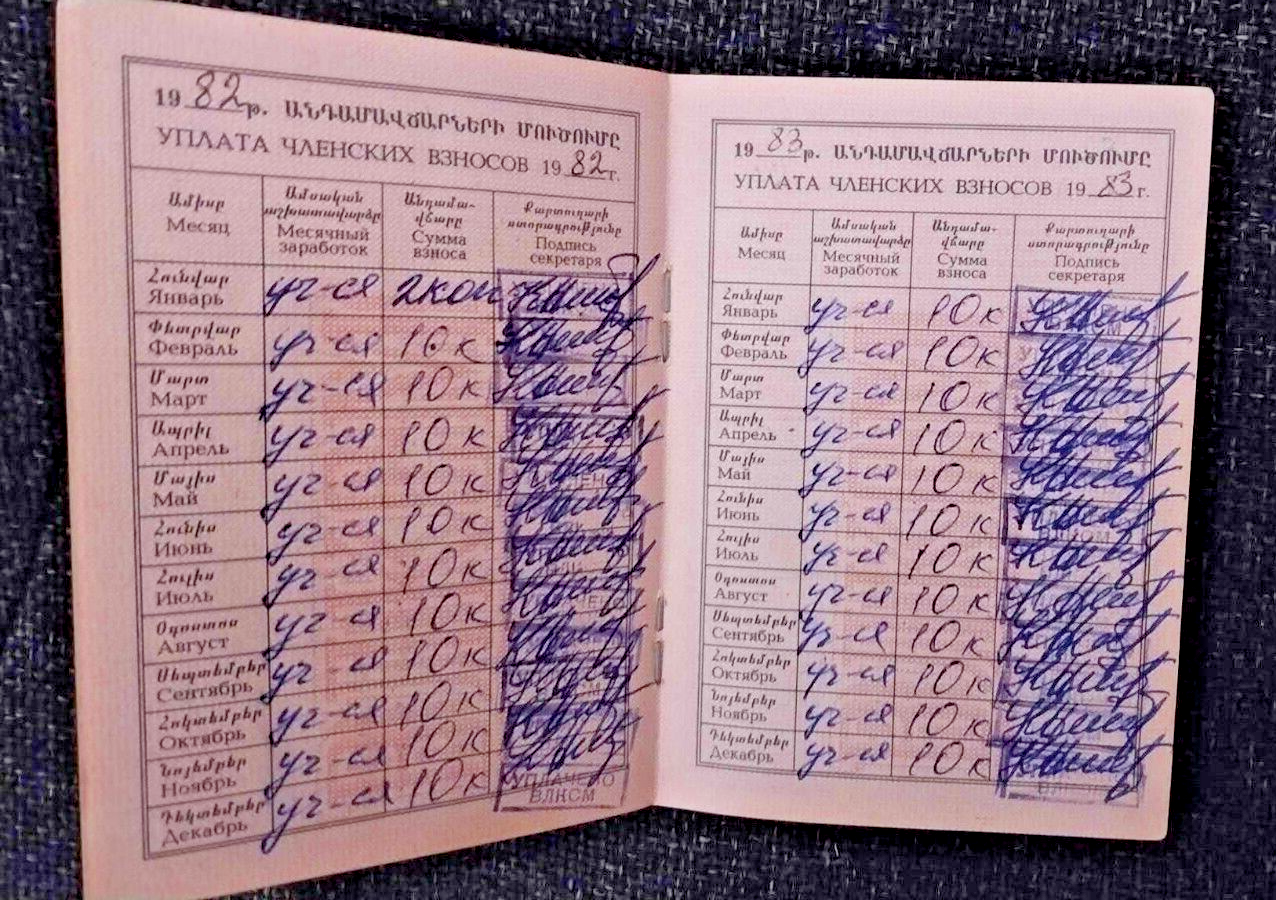 1982թ. ԱՆԴԱՄԱՎՃԱՐՆԵՐԻ ՄՈՒԾՈՒՄԸ
УПЛАТА ЧЛЕНСКИХ ВЗНОСОВ 1982г.
Ամիսը Ամսական աշխատավարձը Անդամա-վճարը Քարտուղարի ստորագրությունը
Месяц Месячный заработок Сумма взноса Подпись секретаря
Հունվար
Январь уч-ся 2коп
Փետրվար
Февраль уч-ся 10к
Մարտ
Март уч-ся 10к
Ապրիլ
Апрель уч-ся 10к
Մայիս
Май уч-ся 10к
Հունիս
Июнь уч-ся 10к
Հուլիս
Июль уч-ся 10к
Օգոստոս
Август уч-ся 10к
Սեպտեմբեր
Сентябрь уч-ся 10к
Հոկտեմբեր
Октябрь уч-ся 10к
Նոյեմբեր
Ноябрь уч-ся 10к
Դեկտեմբեր
Декабрь уч-ся 10к
УПЛАЧЕНО
ВЛКСМ
1983թ. ԱՆԴԱՄԱՎՃԱՐՆԵՐԻ ՄՈՒԾՈՒՄԸ
УПЛАТА ЧЛЕНСКИХ ВЗНОСОВ 1983г.
Ամիսը Ամսական աշխատավարձը Անդամա-վճարը Քարտուղարի ստորագրությունը
Месяц Месячный заработок Сумма взноса Подпись секретаря
Հունվար
Январь уч-ся 10к
Փետրվար
Февраль уч-ся 10к
Մարտ
Март уч-ся 10к
Ապրիլ
Апрель уч-ся 10к
Մայիս
Май уч-ся 10к
Հունիս
Июнь уч-ся 10к
Հուլիս
Июль уч-ся 10к
Օգոստոս
Август уч-ся 10к
Սեպտեմբեր
Сентябрь уч-ся 10к
Հոկտեմբեր
Октябрь уч-ся 10к
Նոյեմբեր
Ноябрь уч-ся 10к
Դեկտեմբեր
Декабрь уч-ся 10к